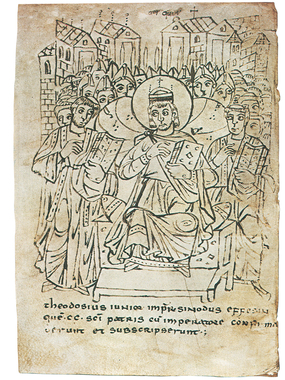 theodosius iunior imp̄ sinodus effesin
que · cc · sc̄i patris cū imperatore confirma
verunt et subscripserunt ·;